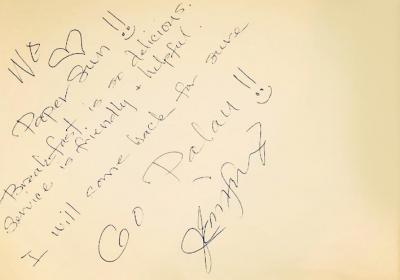 We ♡
Paper Sun!! ☺
Breakfast is so delicious.
Service is friendly & helpful
I will come back for sure
Go Palau!! ☺